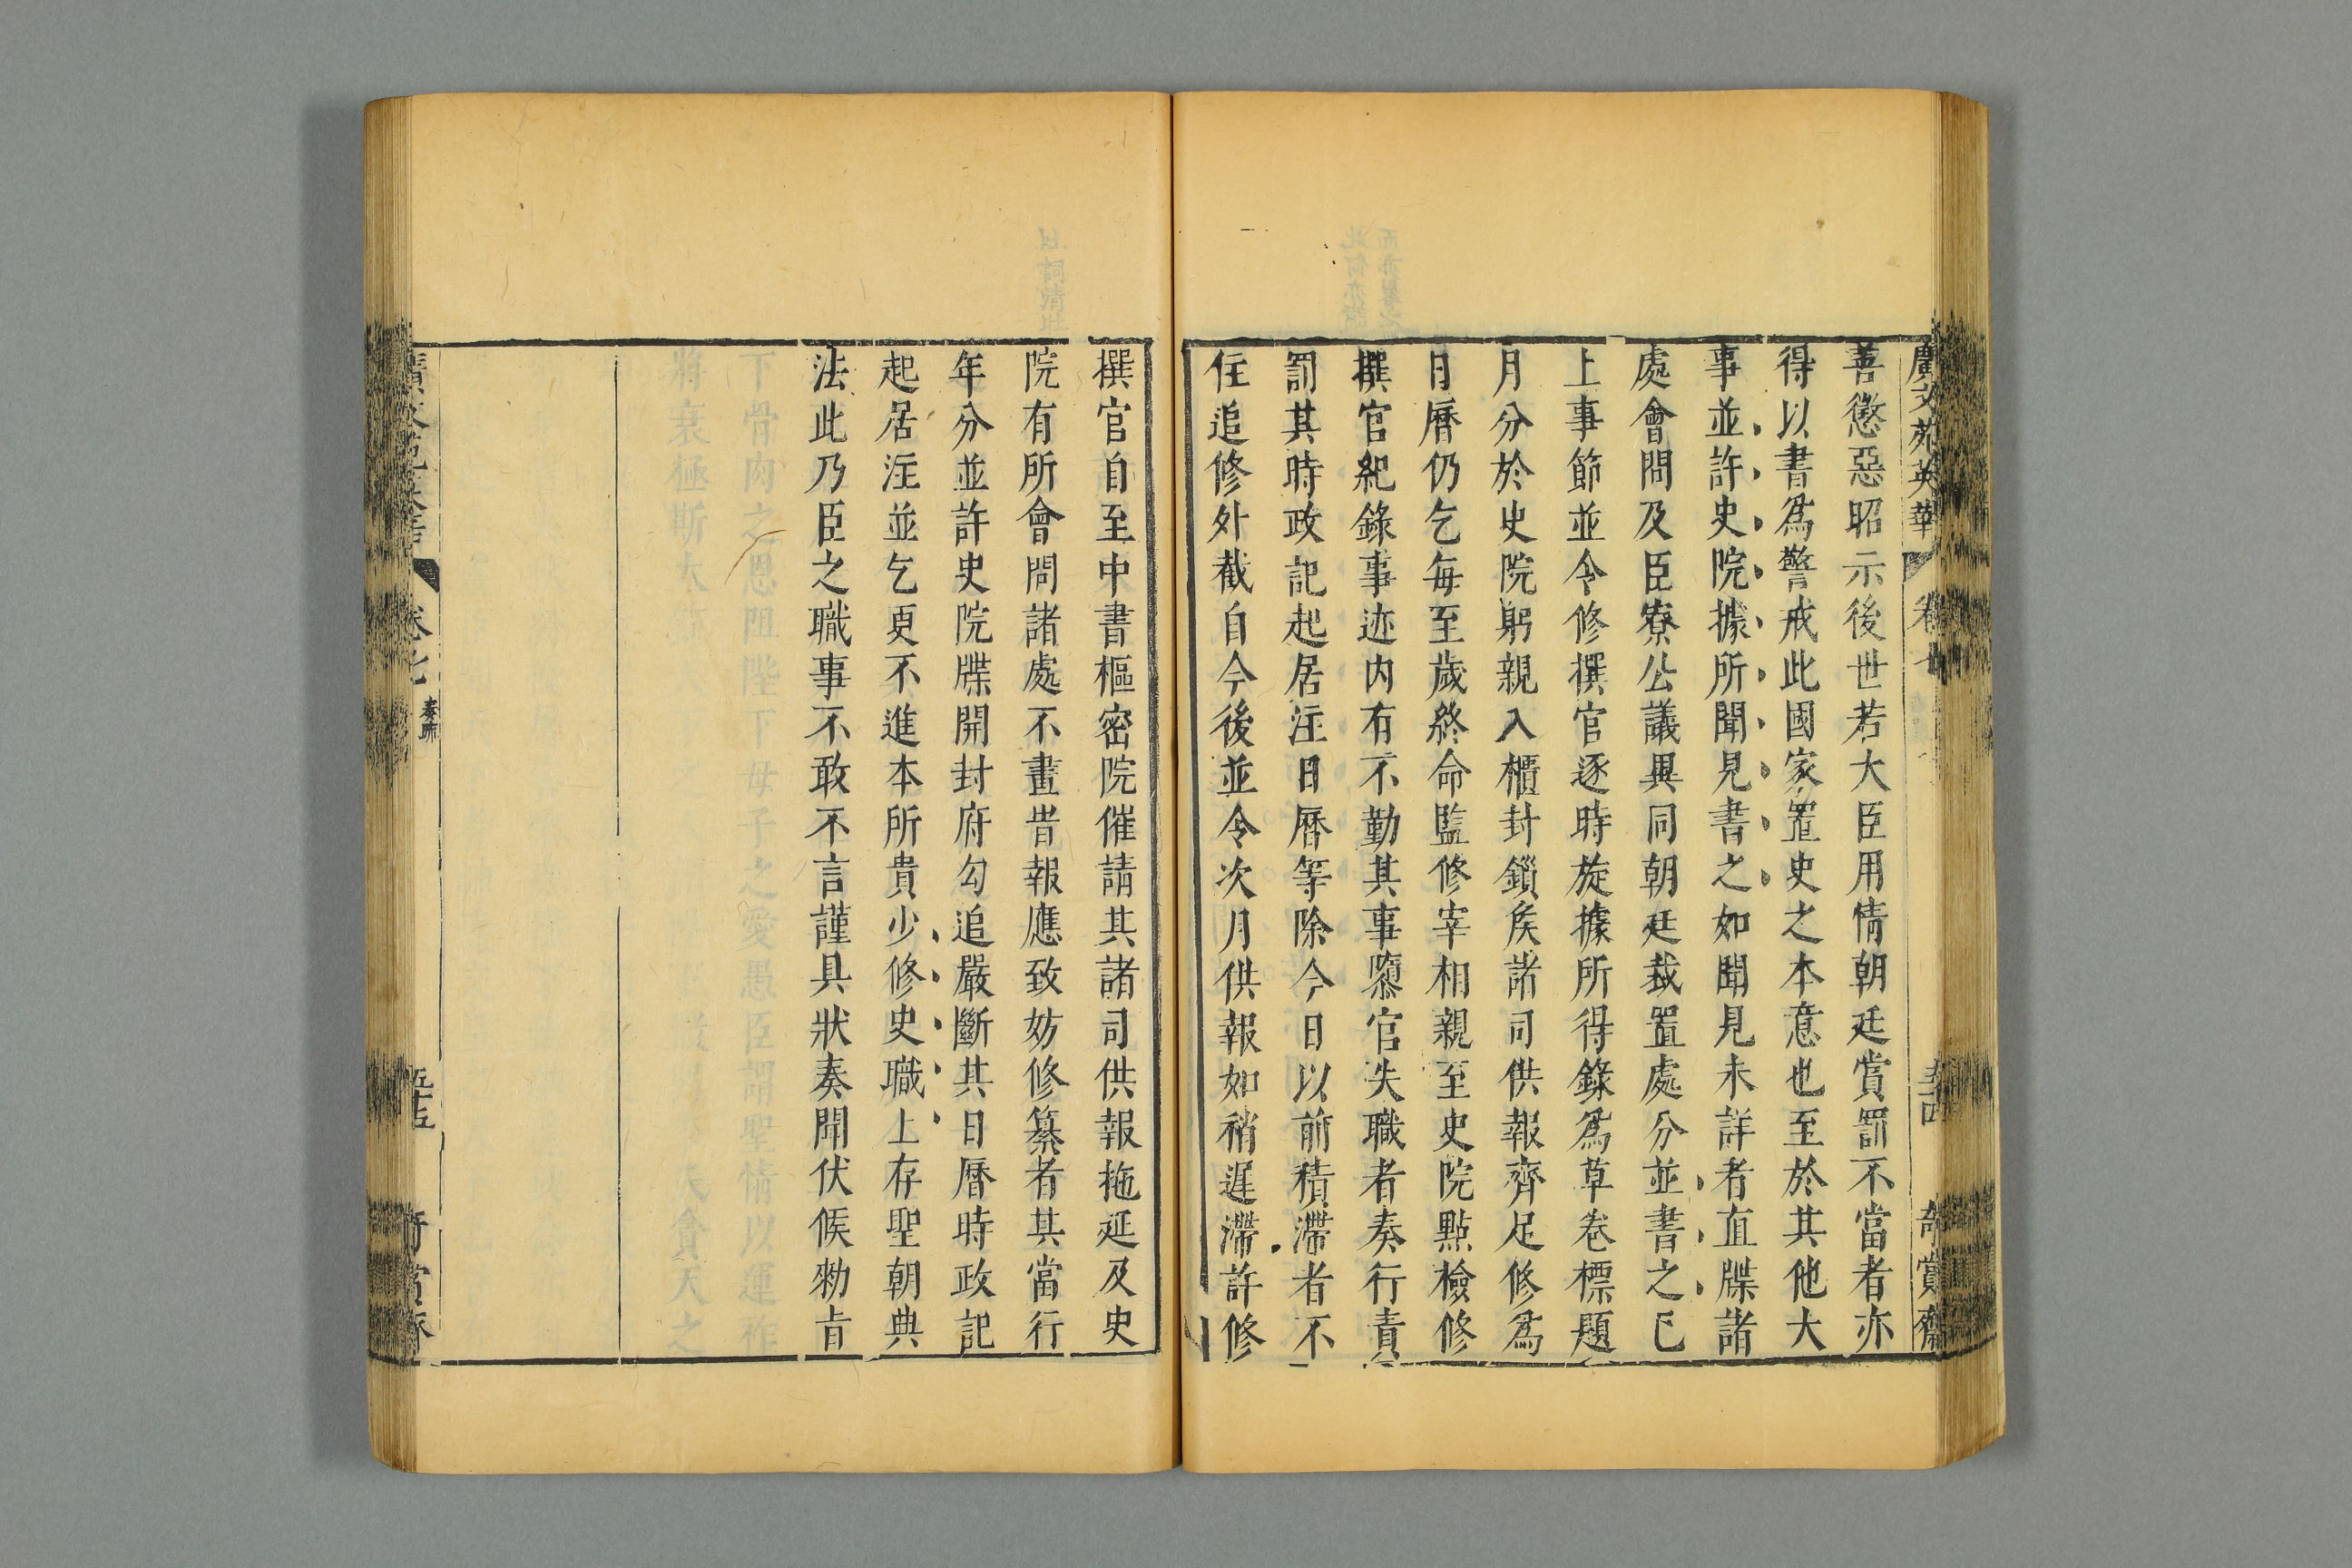 廣文苑英華
善懲惡昭示後世若大臣用情朝廷賞罰不當者亦
得以書爲警戒此國家置史之本意也至於其他大
事並許史院據所聞見書之如聞見未詳者直牒諸
處會問及臣寮公議異同朝廷裁置處分並書之已
上事節並令修撰官逐時旋據所得錄爲草卷標題
月分於史院躬親入櫃封鎖矦諸司供報齊足修爲
日曆仍乞每至歲終命監修宰相親至史院點檢修
撰官紀錄事迹內有不勤其事隳官失職者奏行責
罰其時政記起居注日曆等除今日以前積滯者不
住追修外截自今後並令次月供報如稍遲滯許修
撰官自至中書樞密院催請其諸司供報拖延及史
院有所會問諸處不畫昔報應致妨修纂者其當行
年分並許史院牒開封府勾追嚴斷其日曆時政記
起居注並乞更不進本所貴少修史職上存聖朝典
法此乃臣之職事不敢不言謹具狀奏聞伏候勑旨
卷七 奏疏